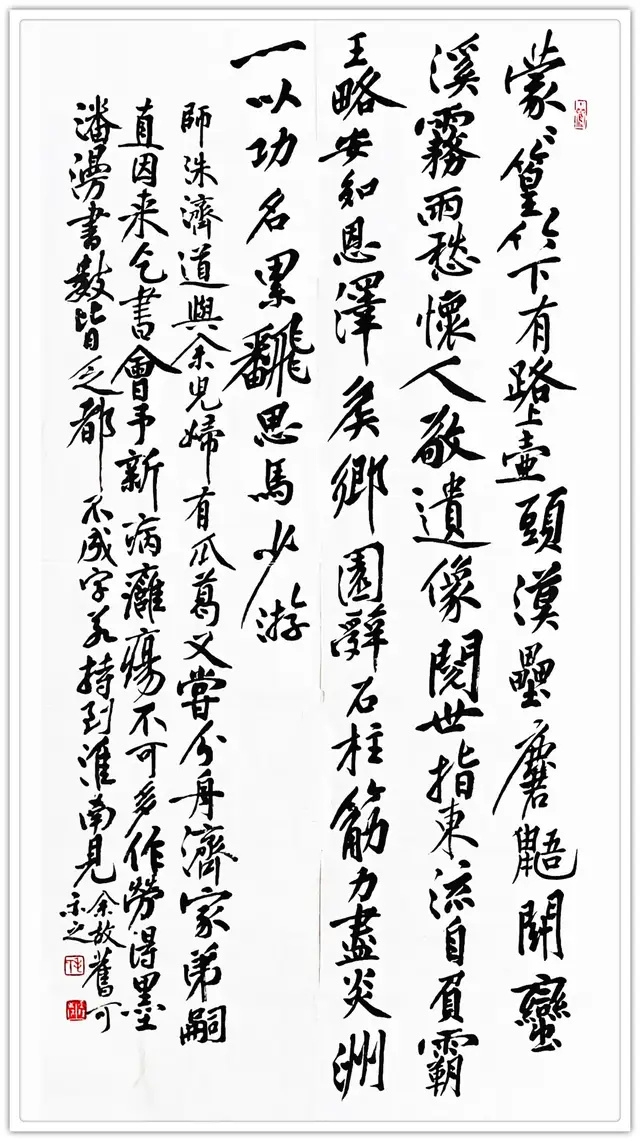 蒙〻篁竹下有路上壺頭漢壘麏鼯鬥蠻
溪霧雨愁懷人敬遺像閱世指東流自負霸
王略安知恩澤侯鄉園辭石柱筋力盡炎洲
一以功名累飜思馬少游
師洙濟道與余兒婦有瓜葛又嘗分舟濟家弟嗣
直因来乞書會予新病癰瘍不可多作勞得墨
潘漫書數皆乏都不成字若持到淮南見
余故舊可
示之